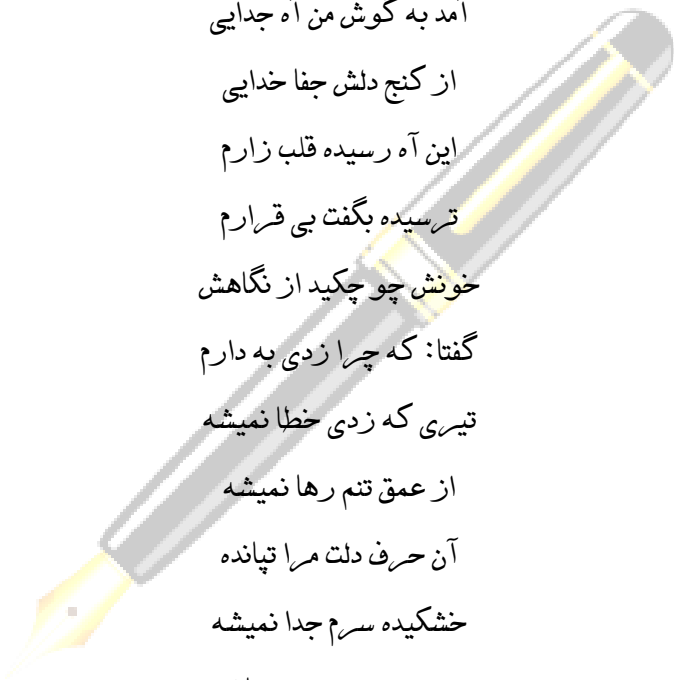 آمد به گوش من آه جدایی
از کنج دلش جفا خدایی
این آه رسیده قلب زارم
ترسیده بگفت بی قرارم
خونش چو چکید از نگاهش
گفتا: که چرا زدی به دارم
تیری که زدی خطا نمیشه
از عمق تنم رها نمیشه
آن حرف دلت مرا تپانده
خشکیده سرم جدا نمیشه